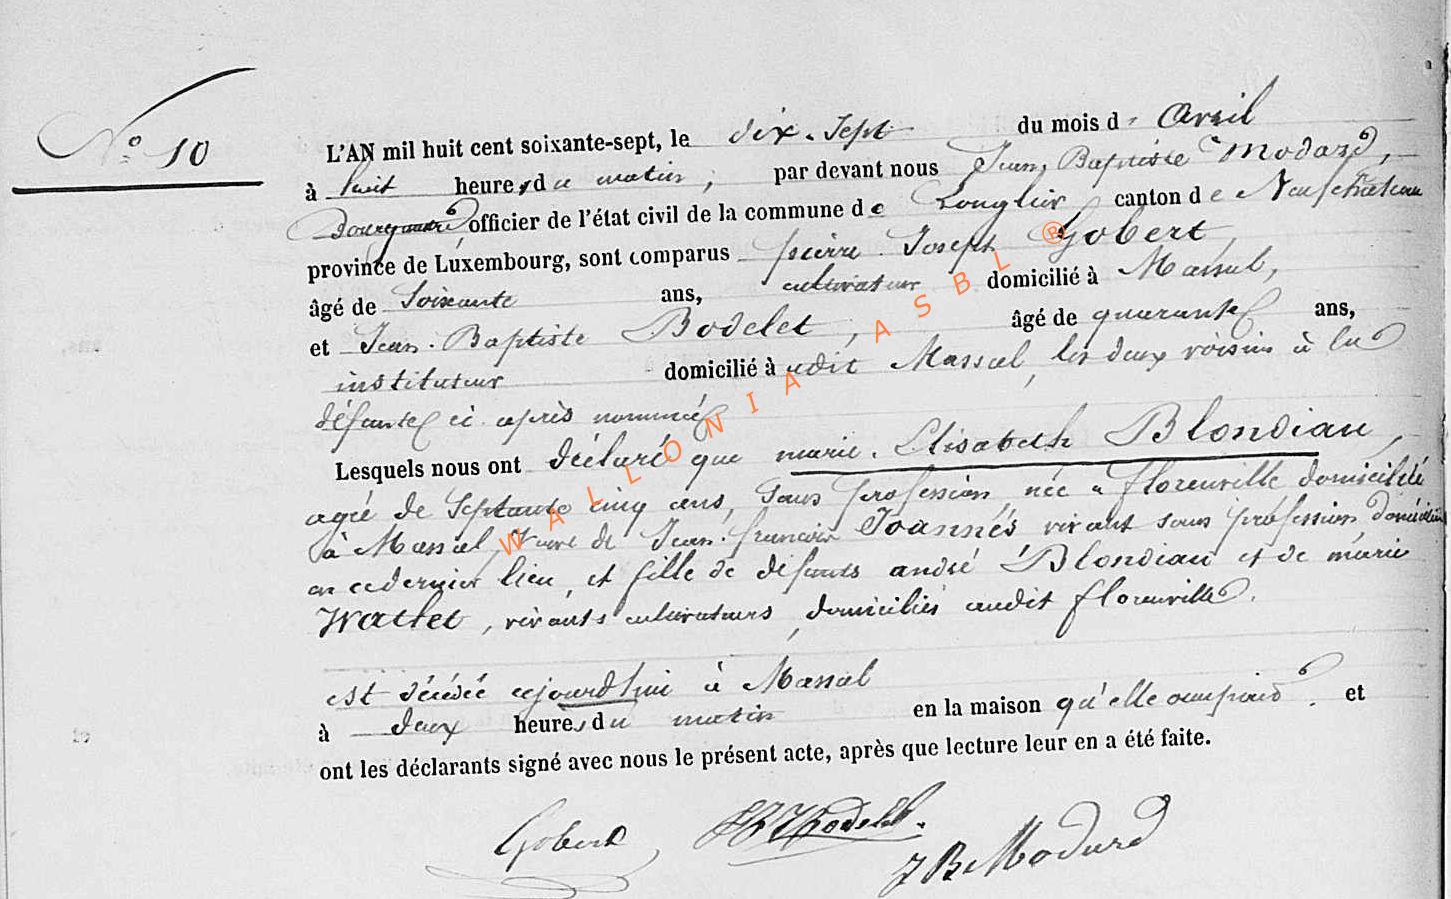 N° 10
L'AN mil huit cent soixante-sept, le dix-sept du mois d' avril
à huit heures du matin, par devant nous Jean Baptiste Modard,
Bourgmestre, officier de l'état civil de la commune de Longlier canton de Neufchâteau
province de Luxembourg, sont comparus pierre Joseph Gobert,
âgé de Soixante ans, cultivateur domicilié à Massul,
et Jean-Baptiste Bodelet, âgé de quarante ans,
instituteur domicilié à udit Massul, les deux voisins à la
défunte ci après nommée
Lesquels nous ont déclaré que marie Elisabeth Blondiau,
agée de Septante cinq ans, sans profession née à florenville domiciliée
à Massul, veuve de Jean-francois Joannés vivant sans profession domicilié
en ce dernier lieu, et fille de défunts andré Blondiau et de marie
Wattet, vivants cultivateurs, domiciliés audit florenville.
est décédée cejourd'hui à Massul
à deux heures du matin en la maison qu'elle occupait. et
ont les déclarants signé avec nous le présent acte, après que lecture leur en a été faite.
Gobert, JB Bodelet. JB Modard
WALLONIA ASBL ®